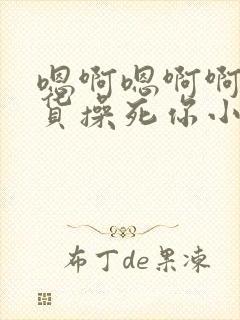 嗯啊嗯啊啊
货操死你小
布丁de果冻